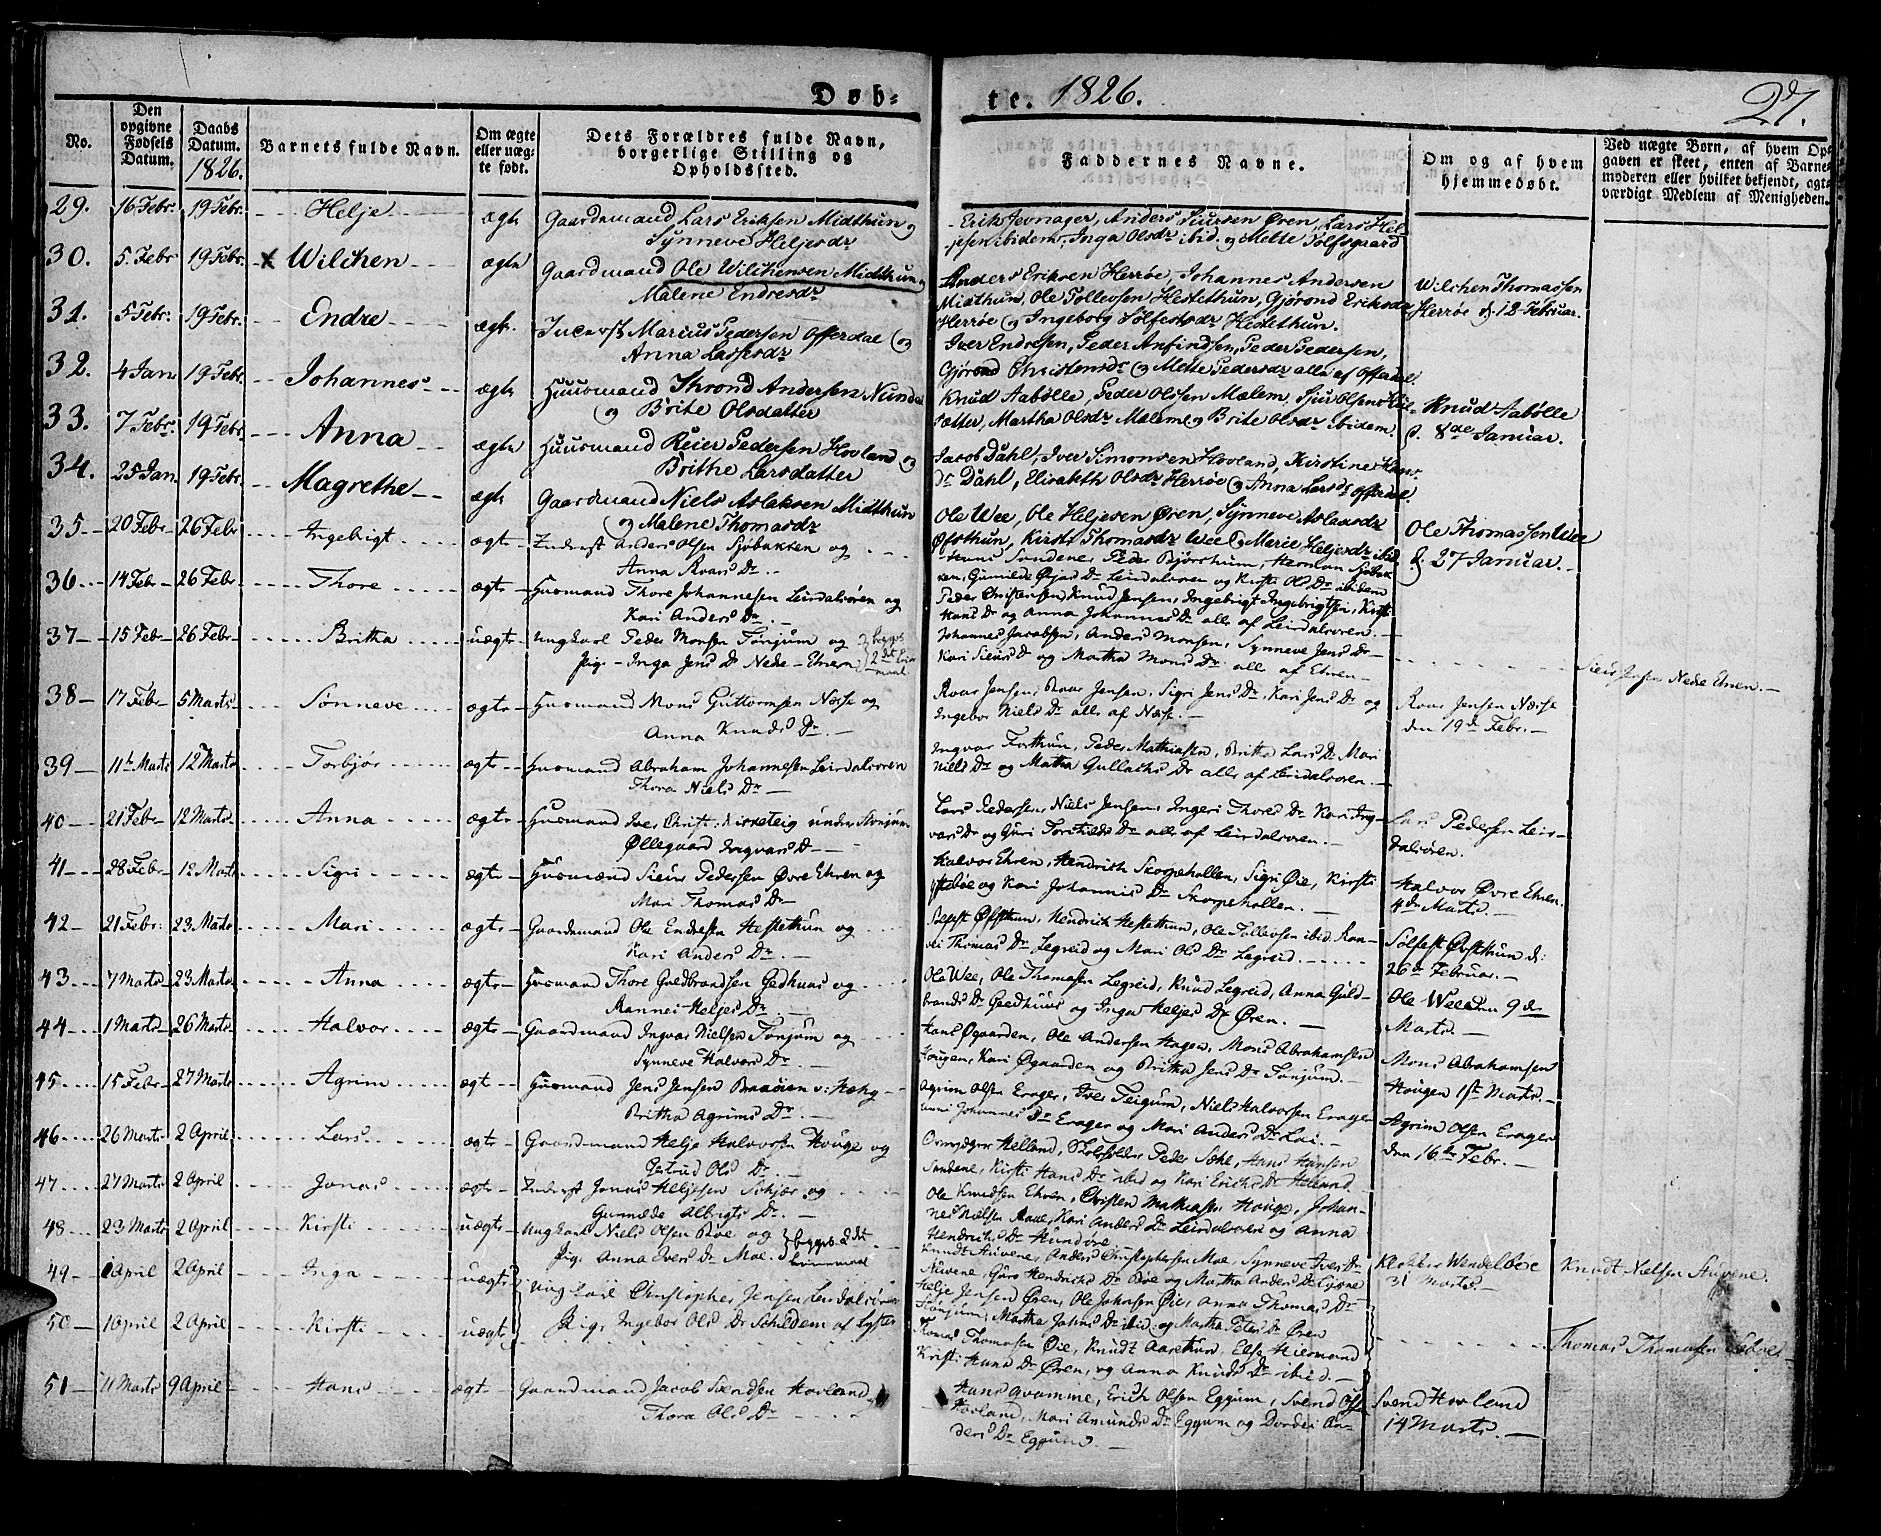 Døb-
te. 1826.
27.
No.
Den opgivne Fødsels Datum.
Daabs Datum. 1826.
Barnets fulde Navn.
Om ægte eller uægte født.
Dets Forældres fulde Navn, borgerlige Stilling og Opholdssted.
Faddernes Navne.
Om og af hvem hjemmedøbt.
Ved uægte Børn, af hvem Opgaven er skeet, enten af Barnemoderen eller hvilket bekjendt, agtværdigt Medlem af Menigheden.
29. 16 Febr. 19 Febr. Helje ægte Gaardmand Lars Eriksen Midthun og
Synneve Heljesdr
Anders Siursen Øren, Lars Hel-
jesen ibidem, Inga Olsdr ibid. og Mette
30. 5. Febr 19 Febr. x Wilchen ægte Gaardmand Ole Wilchensen Midthun og
Malene Endresdr
Anders Eriksen Herrøe, Johannes Andersen
Midthun, Ole Tollevsen Hestethun, Gjørond Eriksdr
Herrøe og Ingeborg Sølfestsdr Hestethun.
Wilchen Thomassen
Herrøe d. 12 Februar.
31. 5 Febr. 19 Febr. Endre ægte Marcus Pedersen Offerdal og
Anna Lassesdr
Iver Endresen, Peder Anfindsen, Peder Pedersen,
Gjørond Christensdr og Mette Pedersdr alle af Offerdal.
32. 4 Jan. 19 Febr. Johannes ægte Huusmand Thrond Andersen Nundal
og Brite Olsdatter
Knud Aabølle, Peder Olsen Mælem, Sjur Olsen
Sætter, Martha Olsdr Malem og Brite Olsdr ibidem.
Knud Aabølle
d. 8de Januar.
33. 7 Febr. 19 Febr. Anna ægte Huusmand Reier Pedersen Hovland og
Brithe Larsdatter
Jacob Dahl, Iver Simonsen Hovland, Kirstine
Dr Dahl, Elisabeth Olsdr Herrøe og Anna Larsdr Offerdal
34. 25 Jan. 19 Febr. Magrethe ægte Gaardmand Niels Aslaksen Midthun
og Malene Thomasdr
Ole Wee, Ole Heljesen Øren, Synneve Aslaksdr
Øfsthun, Kirsti Thomasdr Wee og Marie Heljesdr ibid
Ole Thomassen Wee
d. 27 Januar.
35 20 Febr 26 Febr Ingebrigt ægt Inderst Anders Olsen Sjøbakken og
Anna Roars Dr.
Hans Sundene, Peder Bjørsthun, Herman Sjøbak-
ken, Gunilde Dr Leirdalsøren og Kirsti Ols Dr ibidem
36 14 Febr 26 Febr Thore ægte Huusmand Thore Johannesen Leirdalsøren og
Kari Anders Dr.
Peder Christensen, Knud Jensen, Ingebrigt Ingebrigtsen, Kirsti
Hans Dr og Anna Johannes Dr alle af Leirdalsøren.
37 15 Feb 26 Febr Britha uægte Ungkarl Peder Monsen Tønjum og
Pige Inga Jens Dr Nedre Ehren } begges 2det
Johannes Jacobsen, Anders Monsen, Synneve Jens Dr
Kari Siurs Dr og Martha Mons Dr alle af Ehren
Siur Jensen Nedre Ehren.
38 17 Febr 5 Marts Sønneve ægte Huusmand Mons Guttormsen Næsse og
Anna Knuds Dr.
Roar Jensen, Baar Jensen, Sigri Jens Dr, Kari Jens Dr og
Ingebor Niels Dr alle af Næsse.
Roar Jensen Næsse
den 19de Febr.
39 11te Marts 12 Marts Torbjør ægte Huusmand Abraham Johannesen Leirdalsøren
Thora Niels Dr
Ingvar Forthun, Peder Mathiasen, Britha Lars Dr Mari
Niels Dr og Matha Gullachs Dr alle af Leirdalsøren.
40 21 Febr 12 Marts Anna ægte Huusmand Iver Christ: Kirketeig under Tønjum
Øllegaard Ingvars Dr
Lars Pedersen, Niels Jensen, Ingeri Thores Dr Kari Ing-
vars Dr og Guri Torkilds Dr alle af Leirdalsøren.
Lars Pedersen Leir-
dalsøren.
41 28 Febr 12 Marts Sigri ægte Huusmand Siur Pedersen Øvre Ehren og
Mari Thomas Dr
Halvor Ehren, Hendrich Skorpehollen, Sigri Øie, Kirsti
og Kari Johannis Dr Skorpehollen.
Halvor Øvre Ehren.
4de Marts.
42 21 Febr. 23 Marts Mari ægte Gaardmand Ole Endresen Hestethun og
Kari Anders Dr.
Sølfest Øfsthun, Hendrich Hestethun, Ole Tollevsen ibid. Ran-
vei Thomas Dr Legreid og Mari Ols Dr Legreid.
Sølfest Øvsthun d:
26de Februar.
43 7 Marts 23 Marts Anna ægte Huusmand Thore Guldbrandsen Gedhuus og
Rannei Heljes Dr
Ole Wee, Ole Thomasen Legreid, Knud Legreid, Anna Guld-
brands Dr Geedhuus og Inga Heljes Dr Øren.
Ole Wee den 9de
Marts.
44 1 Marts 26 Marts Halvor ægte Gaardmand Ingvar Nielsen Tønjum og
Synneve Halvors Dr.
Hans Øgaarden, Ole Andersen Hagen, Mons Abrahamsen
Hougen, Kari Øgaarden og Britha Jens Dr Tønjum.
Mons Abrahamsen
Hougen 1ste Marts.
45 15 Febr 27 Marts Agrim ægt Huusmand Jens Jensen
Britha Agrims Dr.
Agrim Olsen Erager, Iver Teigum, Niels Halvorsen Erager
Johannes Dr Erager og Mari Anders Dr
Agrim Olsen Erager
den 16de Febr.
46 26 Marts 2 April Lars ægte Gaardmand Helje Halvorsen Houge og
Gertrud Ols Dr
Helland, Skoleholder Peder Sæhl, Hans Hansen
Sundene, Kirsti Hans Dr ibid og Kari Erichs Dr Helland
47 27 Marts 2 April Jonas ægte Inderst Jonas Heljesen Schjær og
Gunnilde Albrigts Dr.
Ole Knudsen Ehren, Christen Mathiasen Houge, Johan-
nes Nielsen Kari Anders Dr Leirdalsøren og Anna
Hendrichs Dr Hundøre
48 23 Marts 2 April Kirsti uægte Ungkarl Niels Olsen Bøe og
Pige Anna Ivers Dr Moe. } begges 2det
Knudt Stuvene, Anders Christophersen Moe, Synneve Ivers Dr
Stuvene, Guro Hendrichs Dr Bøe og Martha Anders Dr
Klokker Wendelboe
31 Marts.
Knudt Nielsen Stuvene.
49 1 April 2 April Inga uægte
50 1 April 2 April Kirsti uægte } Ungkarl Christopher Jensen Leirdalsøren
Pige Ingebor Ols Dr Schildem af Lyster
Helje Jensen Øren, Ole Johnsen Øie, Anna Thomas Dr
Tønjum, Martha Johns Dr ibid: og Martha Peters Dr Øren
Thomas Thomasen Øie, Knudt Aarethun, Else
Kristi Hans Dr Øren, og Anna Knuds Dr ibid.
Thomas Thomasen
51 11 Marts 9 April Hans ægt Gaardmand Jacob Svendsen Hovland og
Thora Ols Dr
Hans Qvamme, Erich Olsen Eggum, Svend
Hovland, Mari Amunds Dr Eggum og Dordei An-
ders Dr Eggum.
Svend Hovland
14 Marts.